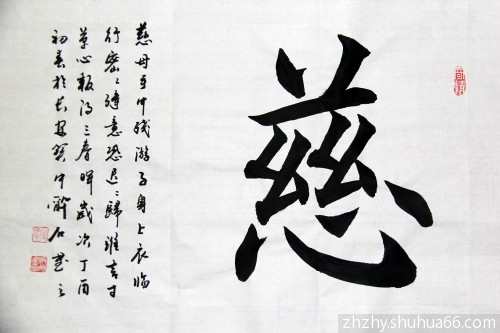 慈
慈母手中线游子身上衣临
行密密缝意恐迟迟歸谁言寸
草心报得三春晖岁次丁酉
初春於中石書之
zhzhy.shuhua66.com